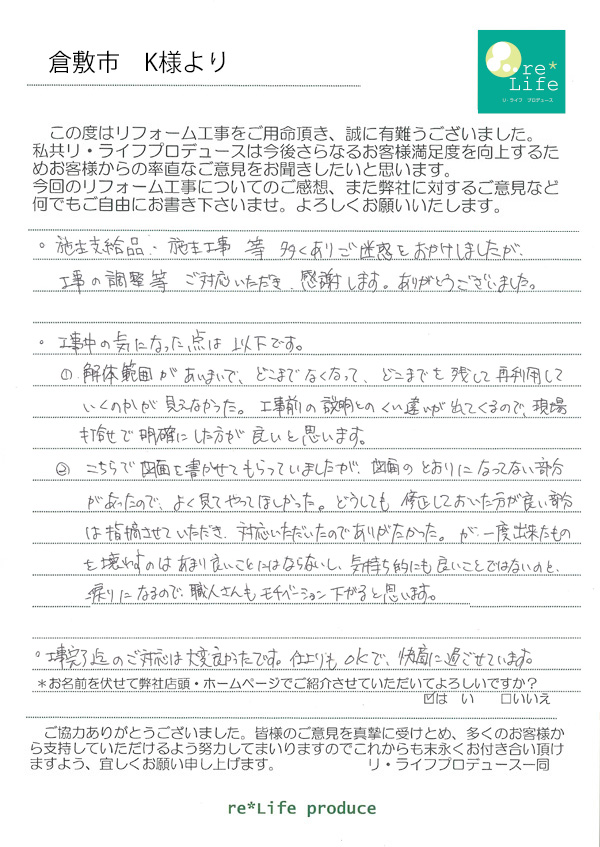 倉敷市　K様より
re*
Life
リ・ライフ プロデュース
この度はリフォーム工事をご用命頂き、誠に有難うございました。
私共リ・ライフプロデュースは今後さらなるお客様満足度を向上するた
めお客様からの率直なご意見をお聞きしたいと思います。
今回のリフォーム工事についてのご感想、また弊社に対するご意見など
何でもご自由にお書き下さいませ。よろしくお願いいたします。
。施主支給品、施主工事 等 多くありご迷惑をおかけしましたが、
工事の調整等 ご対応いただき、感謝します。ありがとうございました。
。工事中の気になった点は以下です。
① 解体範囲があいまいで、どこまでなくなって、どこまでを残して再利用して
いくのかが見えなかった。工事前の説明とのくい違いが出てくるので、現場
打合せで明確にした方が良いと思います。
② こちらで図面を書かせてもらっていましたが、図面のとおりになってない部分
があったので、よく見てやってほしかった。どうしても修正しておいた方が良い部分
は指摘させていただき、対応いただいたのでありがたかった。が、一度出来たもの
を壊わすのはあまり良いことにはならないし、気持ち的にも良いことではないのと、
戻りになるので、職人さんもモチベーション下がると思います。
。工事完了迄のご対応は大変良かったです。仕上りもOKで、快適に過ごせています。
＊お名前を伏せて弊社店頭・ホームページでご紹介させていただいてよろしいですか？
☑は　い　　□いいえ
ご協力ありがとうございました。皆様のご意見を真摯に受けとめ、多くのお客様か
ら支持していただけるよう努力してまいりますのでこれからも末永くお付き合い頂け
ますよう、宜しくお願い申し上げます。　　　　　リ・ライフプロデュース一同
re*Life produce